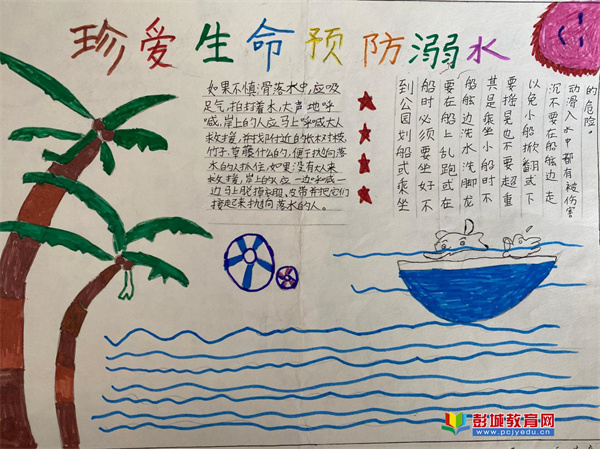 珍爱生命预防溺水
如果不慎滑落水中,应吸
足气,拍打着水,大声地呼
喊,岸上的人应马上呼喊大人
救援,并找附近的长木树枝、
竹子、草藤什么的,便于抛向落
水的人抓住,如果没有大人来
救援,岸上的人应一边呼喊一
边马上脱掉衣服、皮带并把它们
接起来抛向落水的人。
到公园划船或乘坐
船时必须要坐好不
要在船上乱跑或在
船舷边洗水洗脚龙
其是乘坐小船时不
要摇晃也不要超重
以免小船掀翻或下
沉不要在船舷边走
动滑入水中都有被伤害
的危险。
彭城教育网
www.pcjyedu.cn